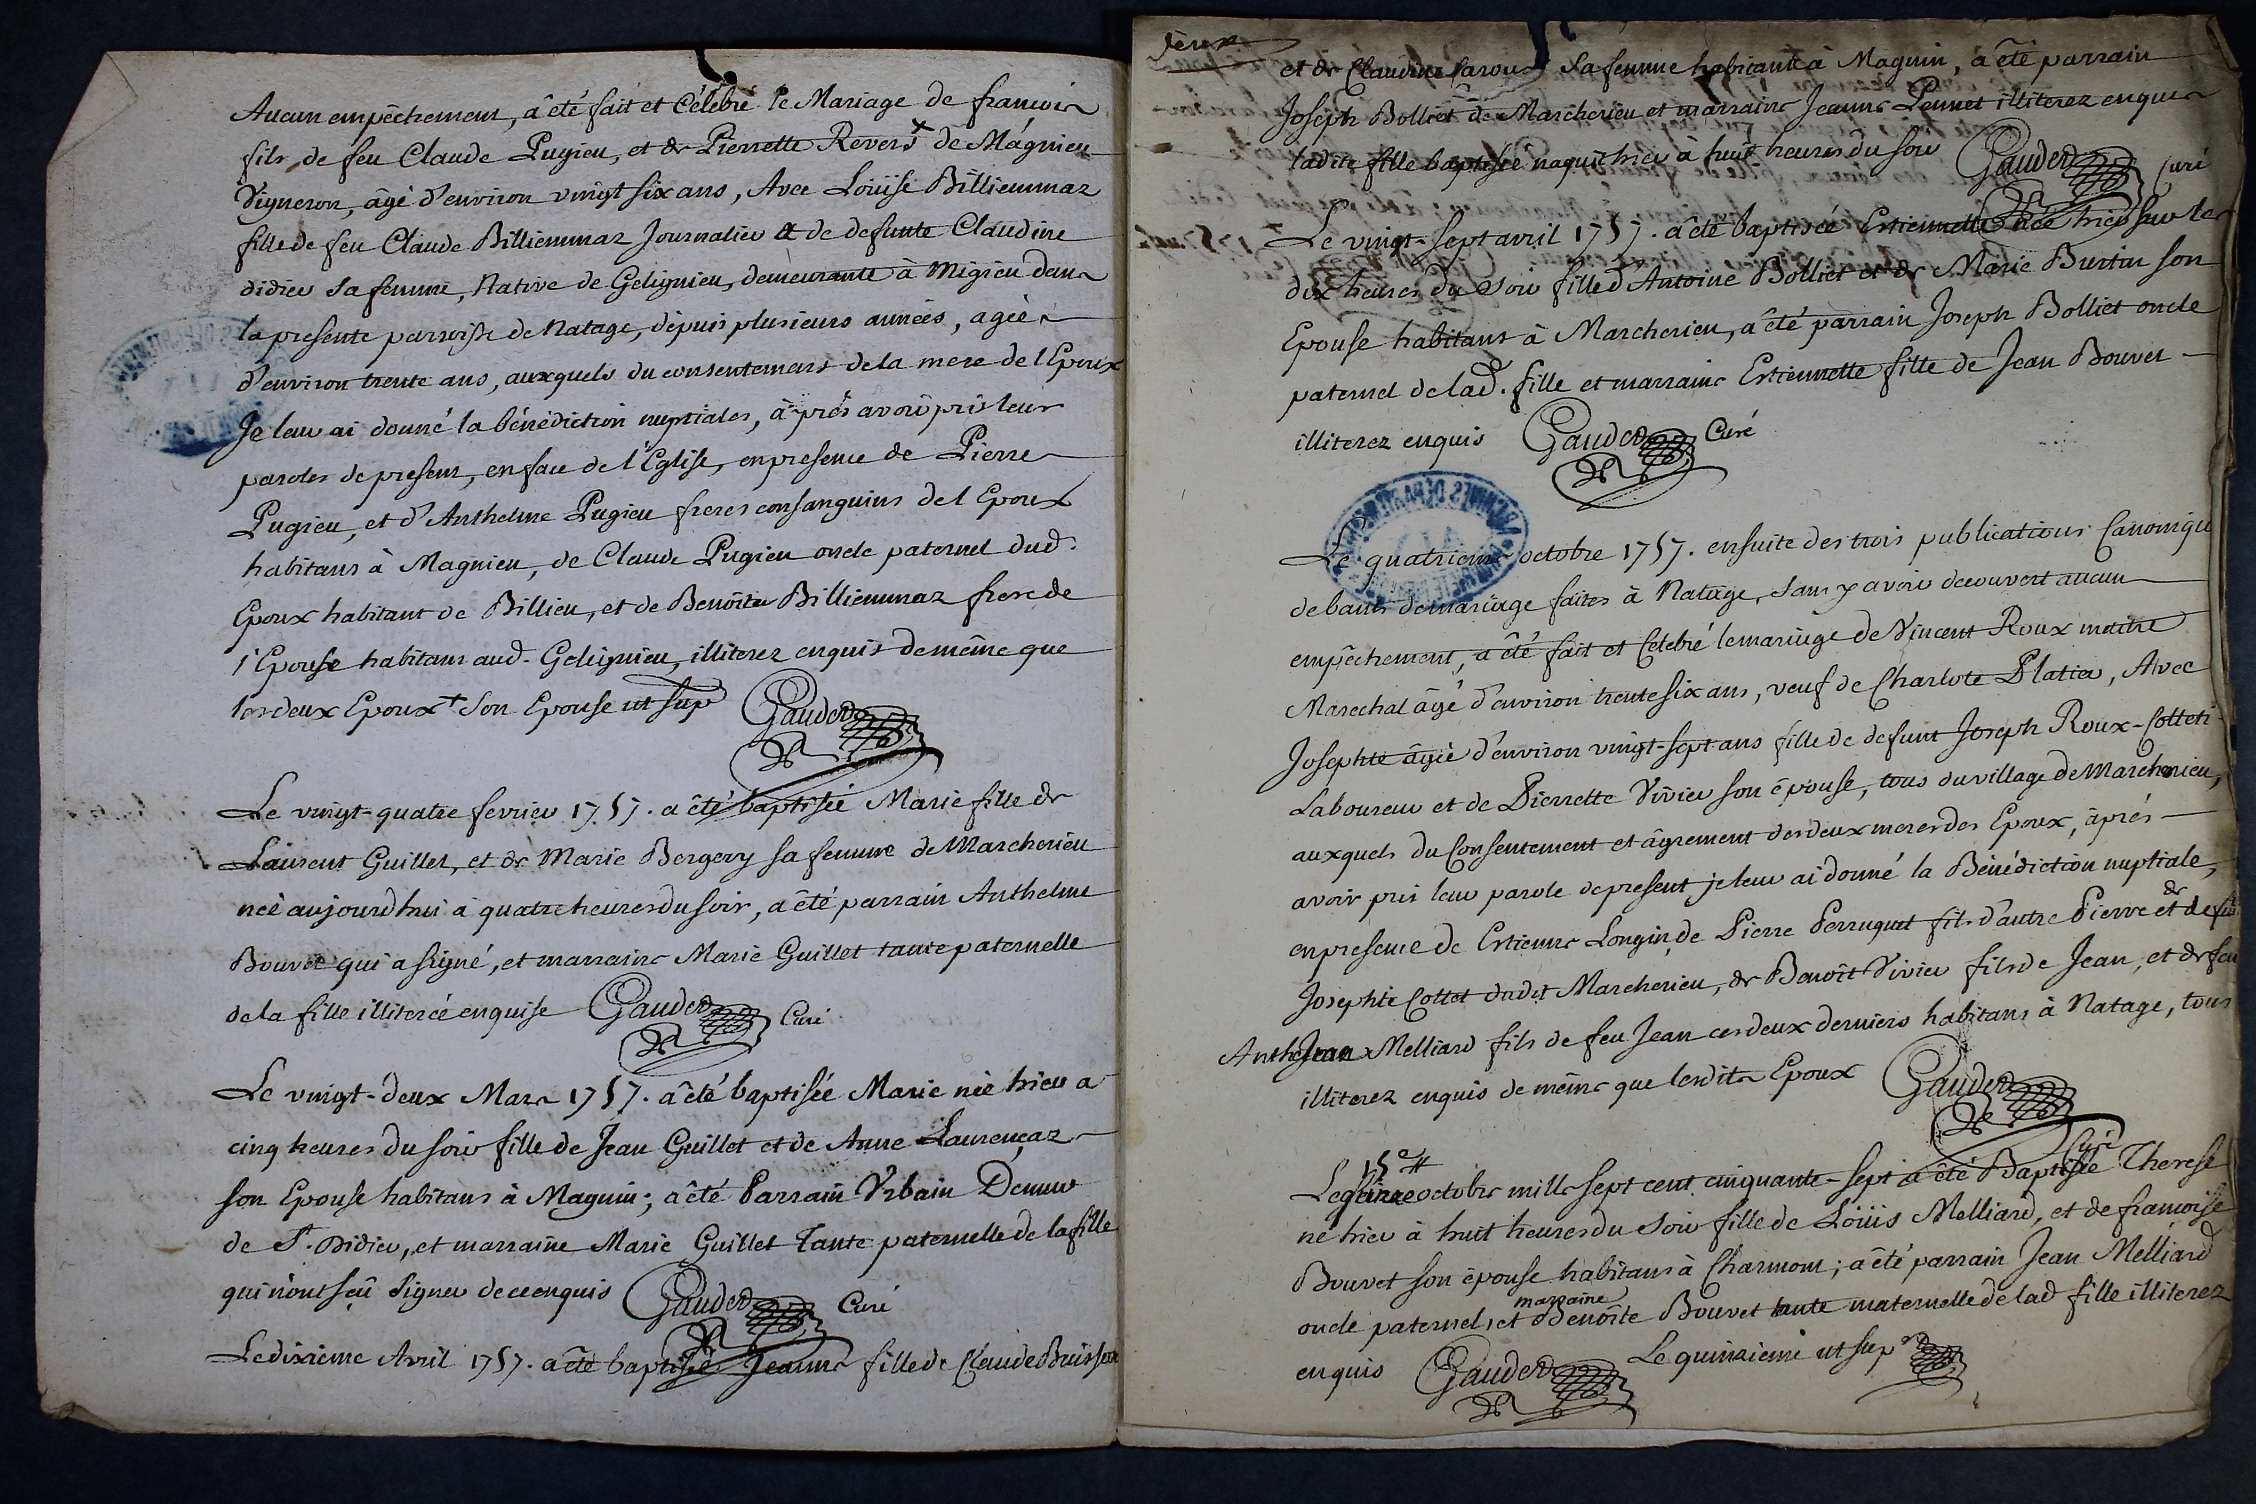 Aucun empêchement, a êté fait et célébré le Mariage de francois
fils de feu Claude Pugieu, et de Pierrette Revers + de Magnieu
Vigneron, âgé d'environ vingt six ans, Avec Loüise Billiemmaz
fille de feu Claude Billiemmaz Journalier et de defunte Claudine
didier sa femme, Native de Gelignieu, demeurante à Migieu dans
la presente parroisse de Natage, dépuis plusieurs années, agée
d'environ trente ans, auxquels du consentement de la mere de l'Epoux
Je leur ai donné la bénédiction nuptiales, àprés avoir pris leur
paroles de present, en face de l'Eglise, en presence de Pierre
Pugieu, et d'Anthelme Pugieu freres consanguins de l'Epoux
habitans à Magnieu, de Claude Pugieu oncle paternel dud.
Epoux habitant de Billieu, et de Benoîte Billiemmaz frere de
l'Epouse habitans aud. Gelignieu, illiterez enquis de même que
les deux Epoux + son Epouse ut sup Gauder
Le vingt-quatre fevrier 1757. a êté baptisée Marie fille de
Laurent Guillet, et de Marie Bergery sa femme de Marcherieu
neé aujourd'hui à quatre heures du soir, a êté parrain Anthelme
Bouvet qui a signé, et marraine Marie Guillet tante paternelle
de la fille illiterée enquise Gauder Curé
Le vingt-deux Mars 1757. a êté baptisée Marie née hier a
cinq heures du soir fille de Jean Guillet et de Anne Laurençaz
son Epouse habitans à Magnin; a êté Parrain Urbain
de St. Didier, et marraine Marie Guillet Tante paternelle de la fille
qui n'ont sçû signer de ce enquis Gauder Curé
Le dixieme Avril 1757. a êté baptisée Jeanne fille de Claude
deux
et de Claudine sa femme habitante à Magnin, a êté parrain
Joseph Bolliet de Marcherieu et marraine Jeanne illiterez enquis
ladite fille baptisée naquit hier à huit heures du soir Gauder Curé
Le vingt-sept avril 1757. a êté baptisée Estiennette née hier sur les
dix heures du soir fille d'Antoine Bolliet et de Marie Burtin son
Epouse habitans à Marcherieu, a êté parrain Joseph Bolliet oncle
paternel de lad. fille et marraine Estiennette fille de Jean Bouvet
illiterez enquis Gauder Curé
Le quatrieme octobre 1757. ensuite des trois publications Canonique
de bans de mariage faites à Natage, sans y avoir decouvert aucun
empêchement, a êté fait et Celebré le mariage de Vincent Roux maitre
Marechal âgé d'environ trente six ans, veuf de Charlote Platier, Avec
Josephte âgée d'environ vingt-sept ans fille de defunt Joseph Roux-Collet
Laboureur et de Pierrette Vivier son épouse, tous du village de Marcherieu,
auxquels du Consentement et âgrement des deux meres des Epoux, àprés
avoir pris leur parole de present je leur ai donné la Bénédiction nuptiale,
en presence de Estienne Longin, de Pierre Perruquet fils d'autre Pierre et de
Josephte Collet dudit Marcherieu, de Benoît Vivier fils de Jean, et de feu
Anthelme Melliard fils de feu Jean ces deux derniers habitans à Natage, tous
illiterez enquis de même que lesdits Epoux Gauder Curé
15e
Le octobre mille sept cent cinquante-sept a êté Baptisée Therese
né hier à huit heures du soir fille de Loüis Melliard, et de francoise
Bouvet son épouse habitans à Charmont; a êté parrain Jean Melliard
oncle paternel, et marraine Benoîte Bouvet tante maternelle de lad fille illiterez
enquis Gauder Le quinzieme ut sup